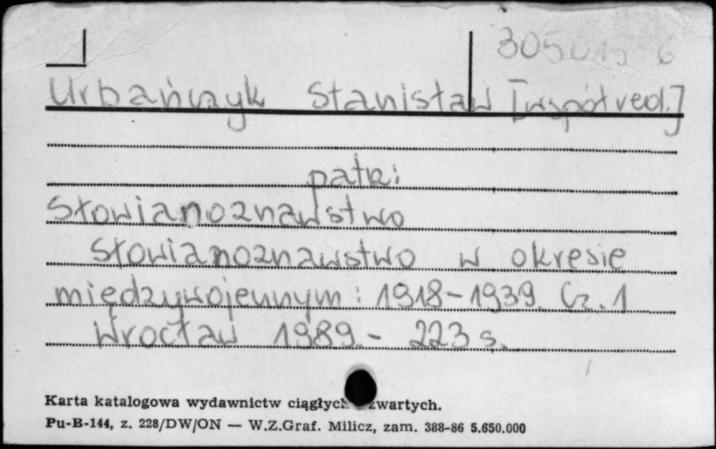 Urbańczyk Stanisław [współred.]
patrz:
Słowianoznawstwo
Słowianoznawstwo w okresie
międzywojennym: 1918-1939 Cz. 1
Wrocław 1989.- 223 s.
Karta katalogowa wydawnictw ciągłych zwartych.
Pu-B-144, z. 228/DW/ON — W.Z.Graf. Milicz, zam. 388-86 5.650.000